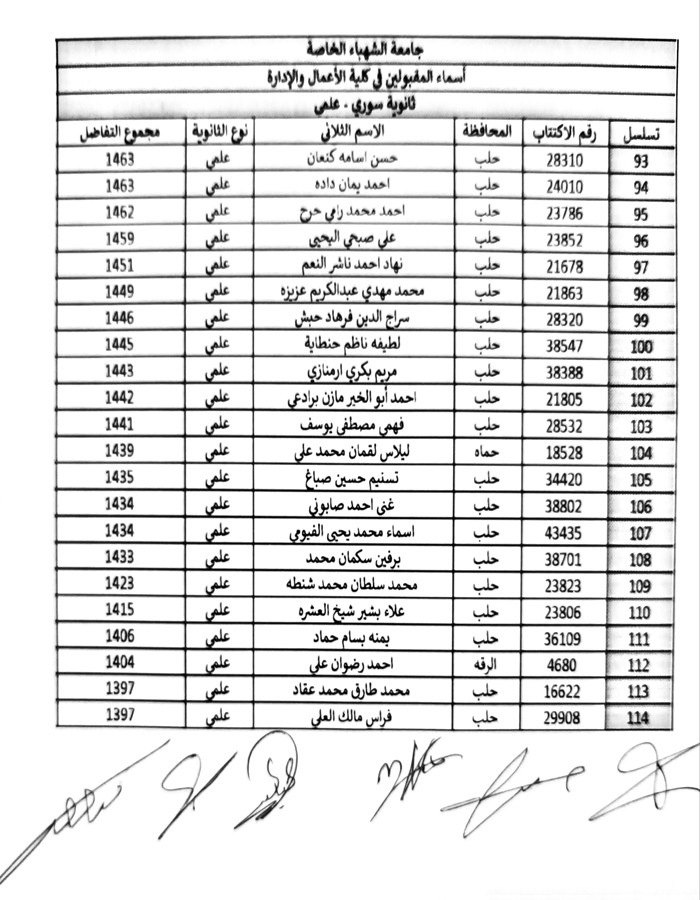 جامعة الشهباء الخاصة
أسماء المقبولين في كلية الأعمال والإدارة
ثانوية سوري - علمي
تسلسل رقم الاكتتاب المحافظة الاسم الثلاثي نوع الثانوية مجموع التفاضل
93 28310 حلب حسن اسامه كنعان علمي 1463
94 24010 حلب احمد يمان داده علمي 1463
95 23786 حلب احمد محمد رامي حرح علمي 1462
96 23852 حلب علي صبحي اليحيى علمي 1459
97 21678 حلب نهاد احمد ناشر النعم علمي 1451
98 21863 حلب محمد مهدي عبدالكريم عزيزه علمي 1449
99 28320 حلب سراج الدين فرهاد حبش علمي 1446
100 38547 حلب لطيفه ناظم حنطاية علمي 1445
101 38388 حلب مريم بكري ارمنازي علمي 1443
102 21805 حلب احمد أبو الخير مازن برادعي علمي 1442
103 28532 حلب فهمي مصطفى يوسف علمي 1441
104 18528 حماه ليلاس لقمان محمد علي علمي 1439
105 34420 حلب تسنيم حسين صباغ علمي 1435
106 38802 حلب غنى احمد صابوني علمي 1434
107 43435 حلب اسماء محمد يحيى الفيومي علمي 1434
108 38701 حلب برفين سكمان محمد علمي 1433
109 23823 حلب محمد سلطان محمد شنطه علمي 1423
110 23806 حلب علاء بشير شيخ العشره علمي 1415
111 36109 حلب يمنه بسام حماد علمي 1406
112 4680 الرقه احمد رضوان علي علمي 1404
113 16622 حلب محمد طارق محمد عقاد علمي 1397
114 29908 حلب فراس مالك العلي علمي 1397